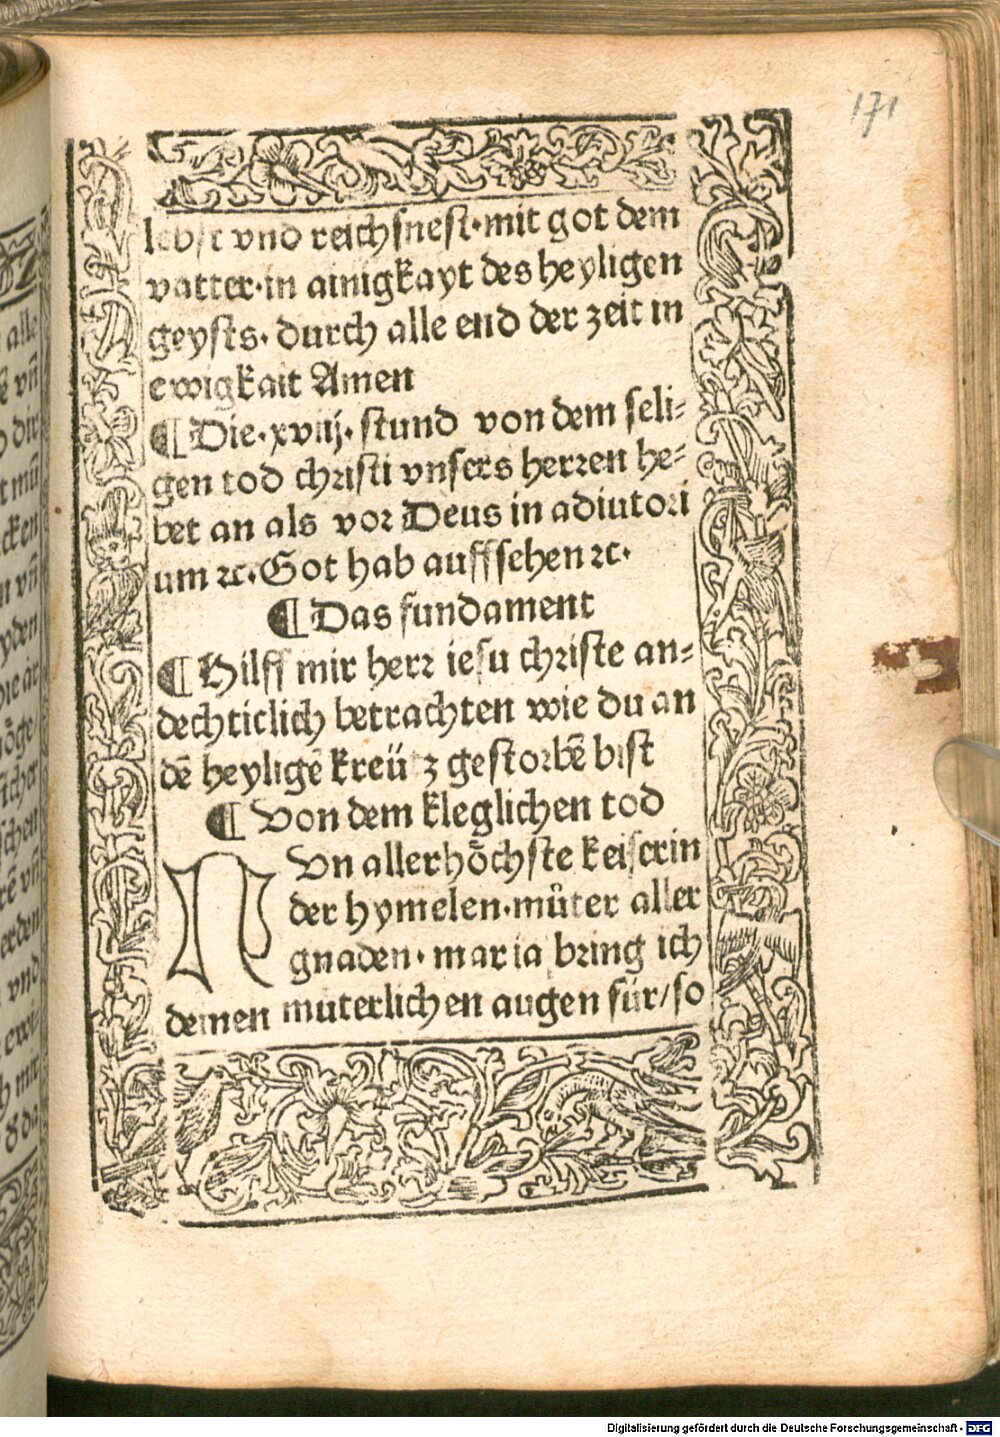 171
lebst vnd reichsnest·mit got dem
vatter·in ainigkayt des heyligen
geysts· durch alle end der zeit in
ewigkait Amen
¶Die·xviij·stund von dem seli⸗
gen tod christi vnsers herren he⸗
bet an als vor Deus in adiutori
um ꝛc·Got hab auffsehen ꝛc·
¶Das fundament
¶Hilff mir herr iesu christe an⸗
dechticlich betrachten wie du an
dē heyligē kreütz gestorbē bist
¶Von dem kleglichen tod
NVn allerhöchste keiserin
der hymelen·můter aller
gnaden·maria bring ich
deinen muterlichen augen für/so
alle
vñ
dir
mū
cken
n vñ
yden
öge
schen
vñ
erden
vnd
ewi⸗
mir
da
Digitalisierung gefördert durch die Deutsche Forschungsgemeinschaft - DFG